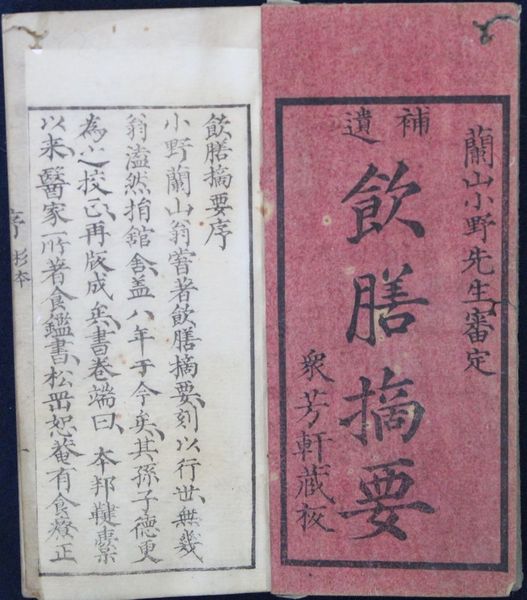 蘭山小野先生審定
補遺
飲膳摘要
衆芳軒藏板
飲膳摘要序
小野蘭山翁嘗著飲膳摘要刻以行世無幾
翁溘然捐舘舎盖八年于今矣其孫子德更
為之挍正再版成矣書卷端曰 本邦鞬櫜
以来醫家所著食鑑書松岡恕菴有食療正
序 杉本